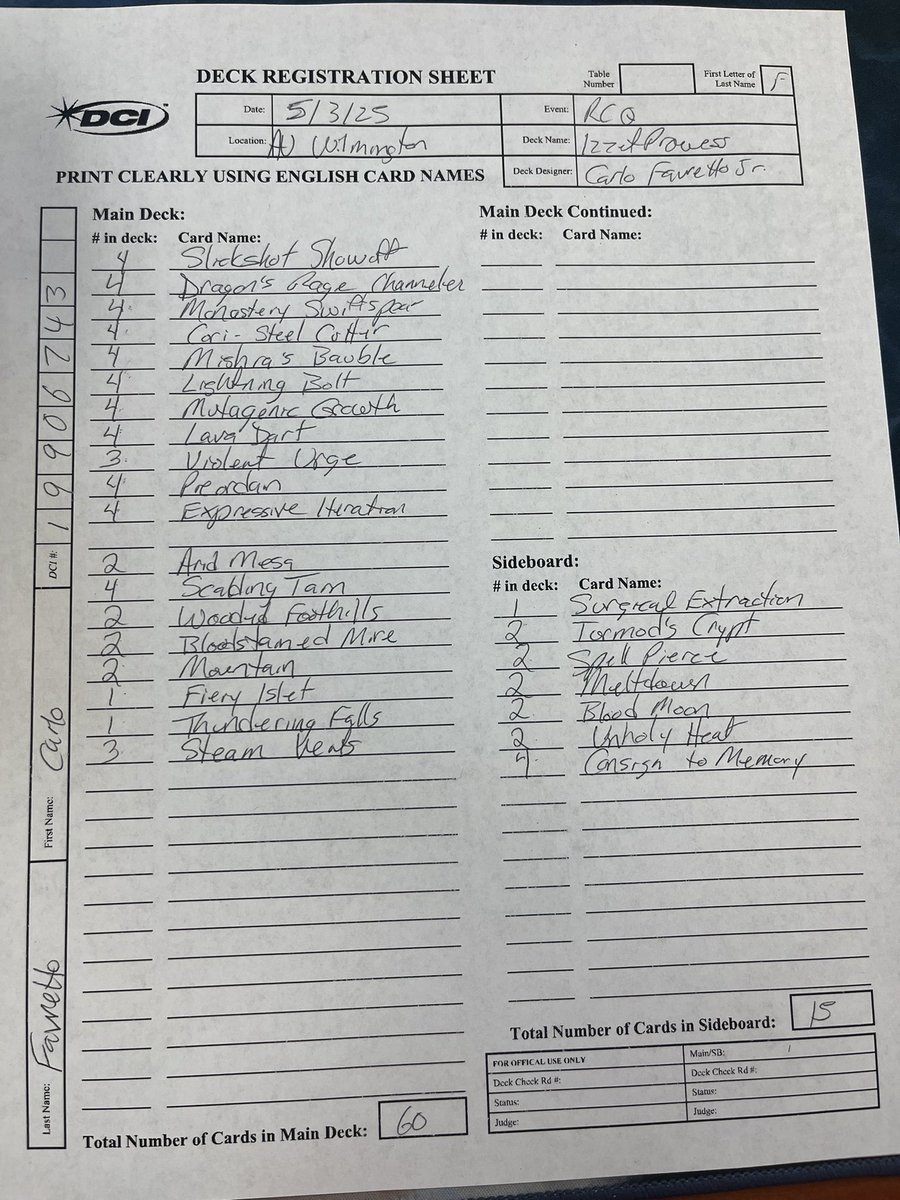 DECK REGISTRATION SHEET
Table Number
First Letter of Last Name F
DCI™
Date: 5/3/25
Event: RCQ
Location: AU Wilmington
Deck Name: Izzet Prowess
Deck Designer: Carlo Favretto Jr.
PRINT CLEARLY USING ENGLISH CARD NAMES
Main Deck:
# in deck: Card Name:
4 Slickshot Showoff
4 Dragon's Rage Channeler
4 Monastery Swiftspear
4 Cori-Steel Cutter
4 Mishra's Bauble
4 Lightning Bolt
4 Mutagenic Growth
4 Lava Dart
3 Violent Urge
4 Preordain
4 Expressive Iteration
2 Arid Mesa
4 Scalding Tarn
2 Wooded Foothills
2 Bloodstained Mire
2 Mountain
1 Fiery Islet
1 Thundering Falls
3 Steam Vents
Total Number of Cards in Main Deck: 60
Main Deck Continued:
# in deck: Card Name:
Sideboard:
# in deck: Card Name:
1 Surgical Extraction
2 Tormod's Crypt
2 Spell Pierce
2 Meltdown
2 Blood Moon
2 Unholy Heat
4 Consign to Memory
Total Number of Cards in Sideboard: 15
FOR OFFICAL USE ONLY
Main/SB: /
Deck Check Rd #:
Deck Check Rd #:
Status:
Status:
Judge:
Judge:
Last Name: Favretto
First Name: Carlo
DCI #: 19906743